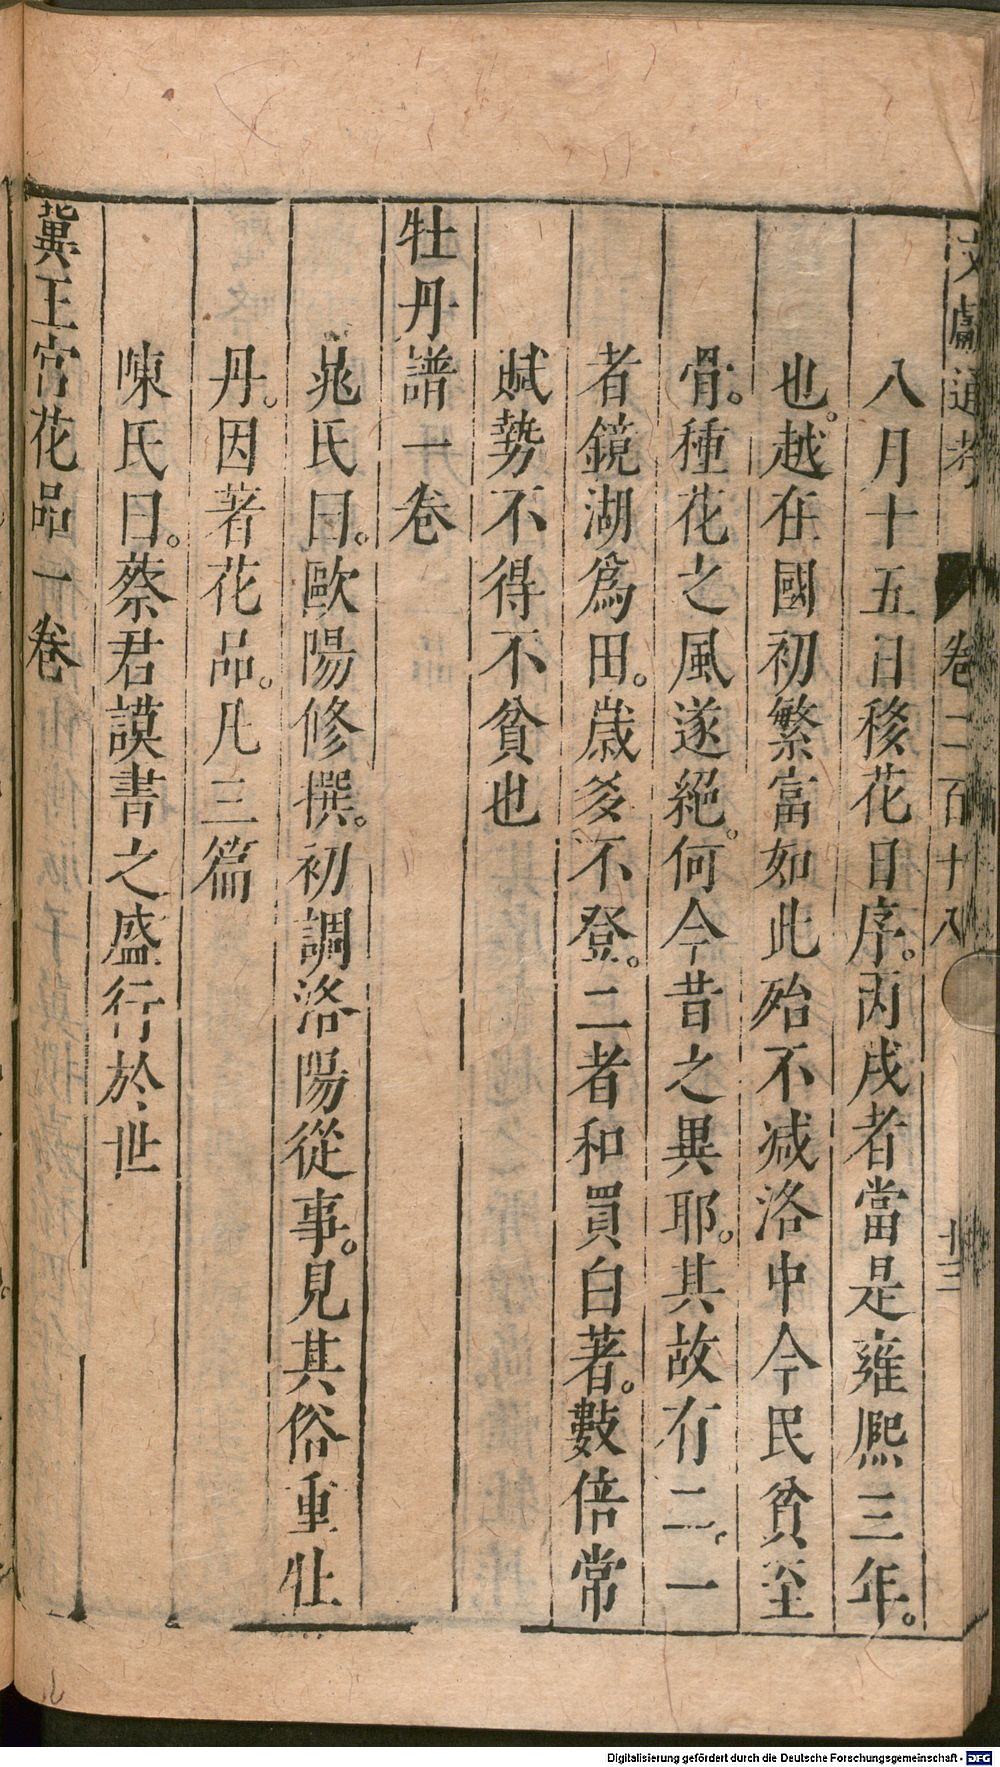 文獻通考 卷二百十八 十三
八月十五日移花日序。丙戌者當是雍熙三年。
也。越在國初繁富如此殆不減洛中今民貧至
骨。種花之風遂絕。何今昔之異耶。其故有二。一
者鏡湖爲田。歲多不登。二者和買白著。數倍常
賦勢不得不貧也
牡丹譜一卷
晁氏曰。歐陽修撰。初調洛陽從事。見其俗重牡
丹。因著花品。凡三篇
陳氏曰。蔡君謨書之盛行於世
冀王宮花品一卷
Digitalisierung gefördert durch die Deutsche Forschungsgemeinschaft - DFG